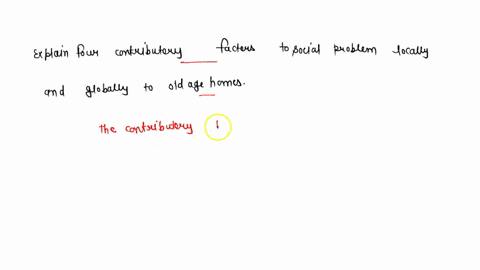 Explain four contributory factors to social problem locally
and globally to old age homes.
The contributory